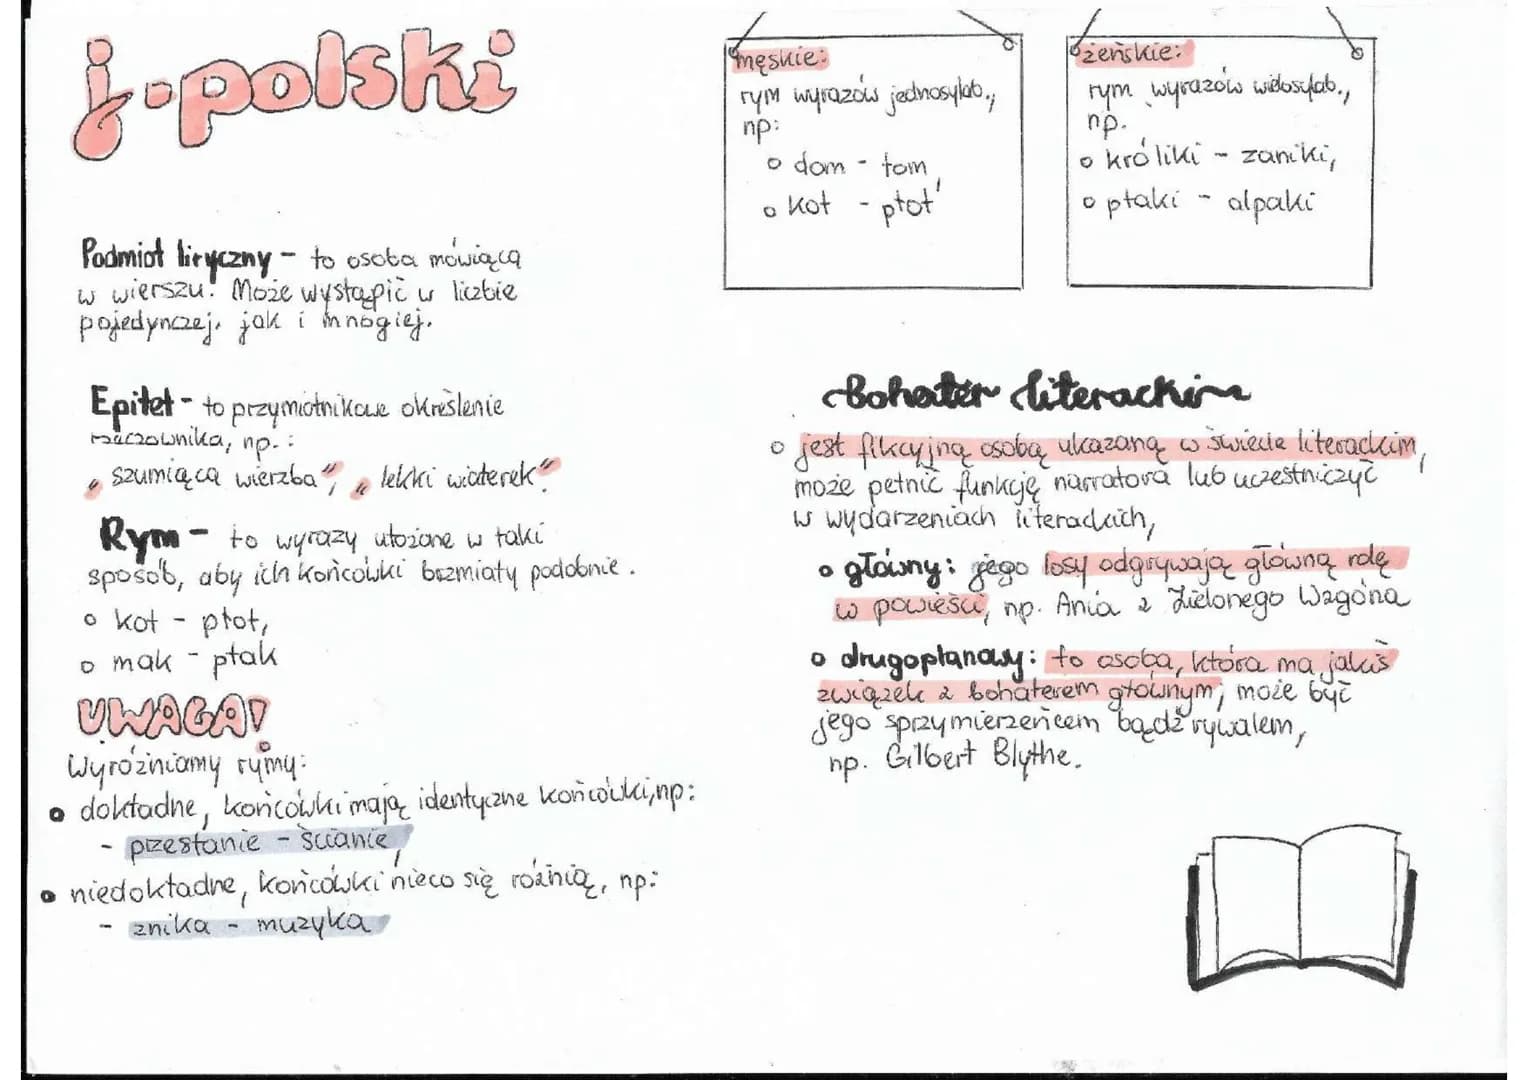 j.polski
Podmiot liryczny - to osoba mówiąca
w wierszu. Może wystąpić w liczbie
pojedynczej, jak i mnogiej.
Epitet - to przymiotnikowe określenie
rzeczownika, np.:
„szumiąca wierzba", „lekki wiaterek".
Rym - to wyrazy ułożone w taki
sposób, aby ich końcówki brzmiały podobnie.
o kot - płot,
o mak - ptak
UWAGA!
Wyróżniamy rymy:
• dokładne, końcówki mają identyczne końcówki, np:
- przestanie - ścianie,
• niedokładne, końcówki nieco się różnią, np:
- znika - muzyka
męskie:
rym wyrazów jednosylab.,
np:
o dom - tom,
o kot - płot
żeńskie:
rym wyrazów wielosylab.,
np.
o króliki - zaniki,
o ptaki - alpaki
Bohater literacki
o jest fikcyjną osobą ukazaną w świecie literackim,
może pełnić funkcję narratora lub uczestniczyć
w wydarzeniach literackich,
o główny: jego losy odgrywają główną rolę
w powieści, np. Ania z Zielonego Wzgórza
o drugoplanowy: to osoba, która ma jakiś
związek z bohaterem głównym, może być
jego sprzymierzeńcem bądź rywalem,
np. Gilbert Blythe.